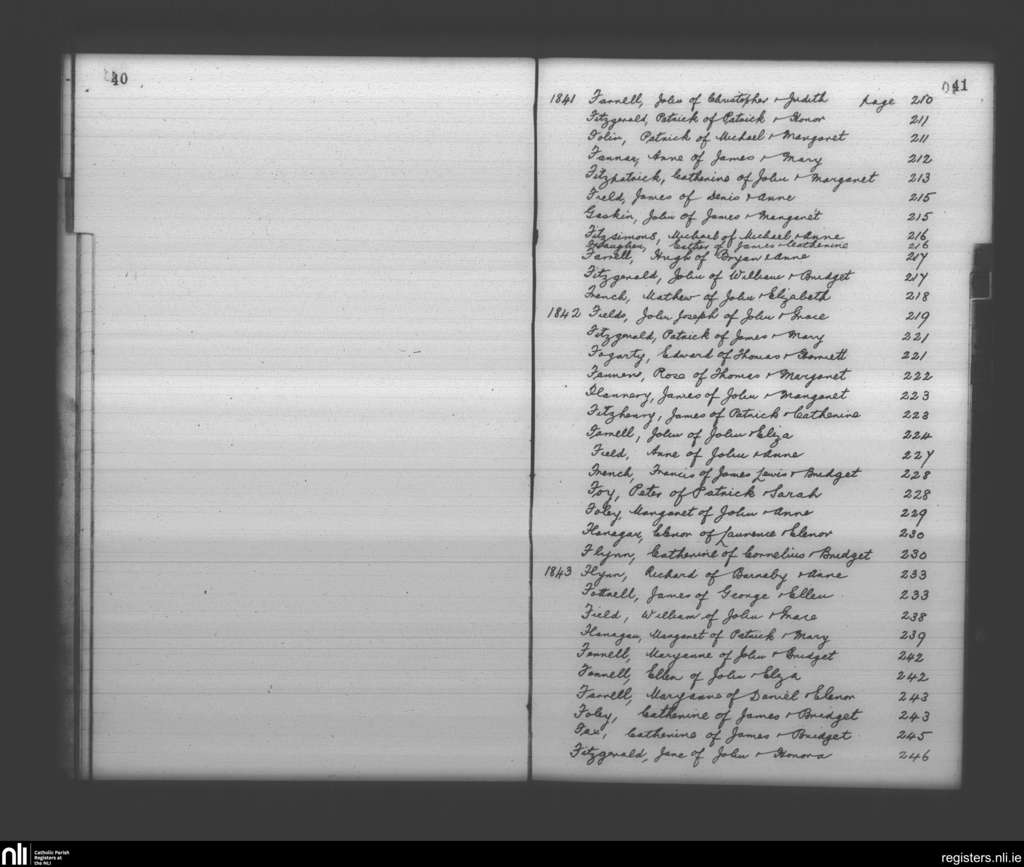 40
41
1841 Farrell, John of Christopher & Judith page 210
Fitzgerald, Patrick of Patrick & Honor 211
Folin, Patrick of Michael & Margaret 211
Fannar, Anne of James & Mary 212
Fitzpatrick, Catherine of John & Margaret 213
Field, James of Denis & Anne 215
Gaskin, John of James & Margaret 215
Fitzsimons, Michael of Michael & Anne 216
Esther of James & Catherine 216
Farrell, Hugh of Bryan & Anne 217
Fitzgerald, John of William & Bridget 217
French, Mathew of John & Elizabeth 218
1842 Fields, John Joseph of John & Grace 219
Fitzgerald, Patrick of James & Mary 221
Fogarty, Edward of Thomas & Harriett 221
Rose of Thomas & Margaret 222
Flannery, James of John & Margaret 223
Fitzhenry, James of Patrick & Catherine 223
Farrell, John of John & Eliza 224
Field, Anne of John & Anne 227
French, Francis of James Lewis & Bridget 228
Foy, Peter of Patrick & Sarah 228
Foley, Margaret of John & Anne 229
Flanagan, Elenor of Laurence & Elenor 230
Flynn, Catherine of Cornelius & Bridget 230
1843 Flynn, Richard of Barnaby & Anne 233
Fottrell, James of George & Ellen 233
Field, William of John & Grace 238
Flanagan, Margaret of Patrick & Mary 239
Fennell, Maryanne of John & Bridget 242
Fennell, Ellen of John & Eliza 242
Farrell, Maryanne of Daniel & Elenor 243
Foley, Catherine of James & Bridget 243
Catherine of James & Bridget 245
Fitzgerald, Jane of John & Honora 246
nli
Catholic Parish
Registers at
the NLI
registers.nli.ie